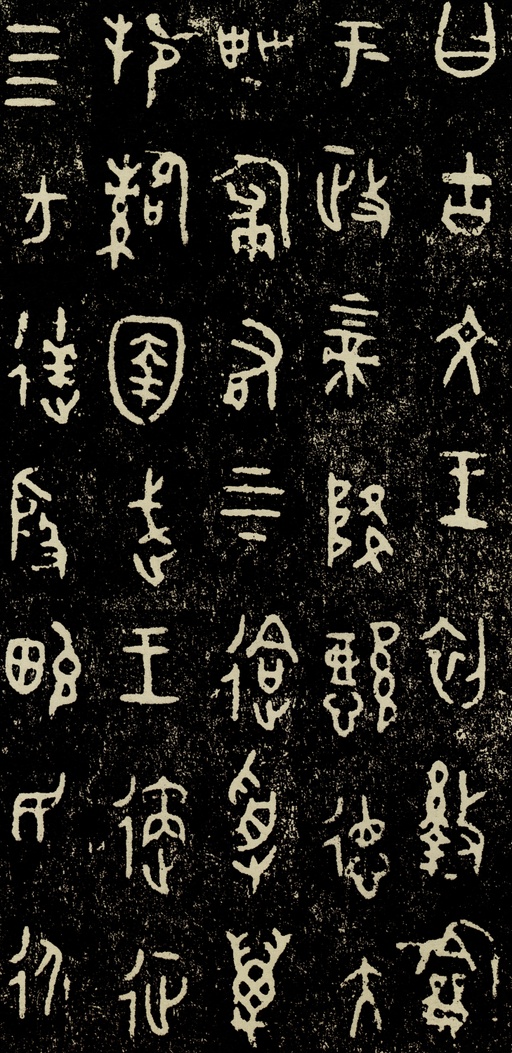 曰古文王初盭龢
于政上帝降懿德大
甹匍有上下迨受萬
邦䚄圉武王遹征
四方達殷畯民永